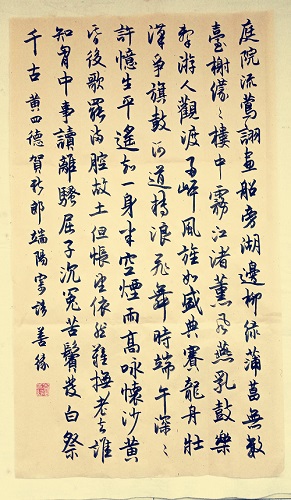 庭院流鶯詡畫船旁湖邊柳綠蒲菖無數
臺榭濛〻樓中霧江渚薰風燕乳鼓樂
游人觀渡兩岸風旌如盛典賽龍舟壯
漢爭旗鼓河道轉浪飛舞時端午深〻
許憶生平遙知一身半空煙雨高詠懷沙黃
昏後歌罷滿腔故土但悵望依然難撫老去誰
知胸中事讀離騷屈子沉冤苦鬢發白祭
千古 黃四德賀新郎端陽寄語善緣